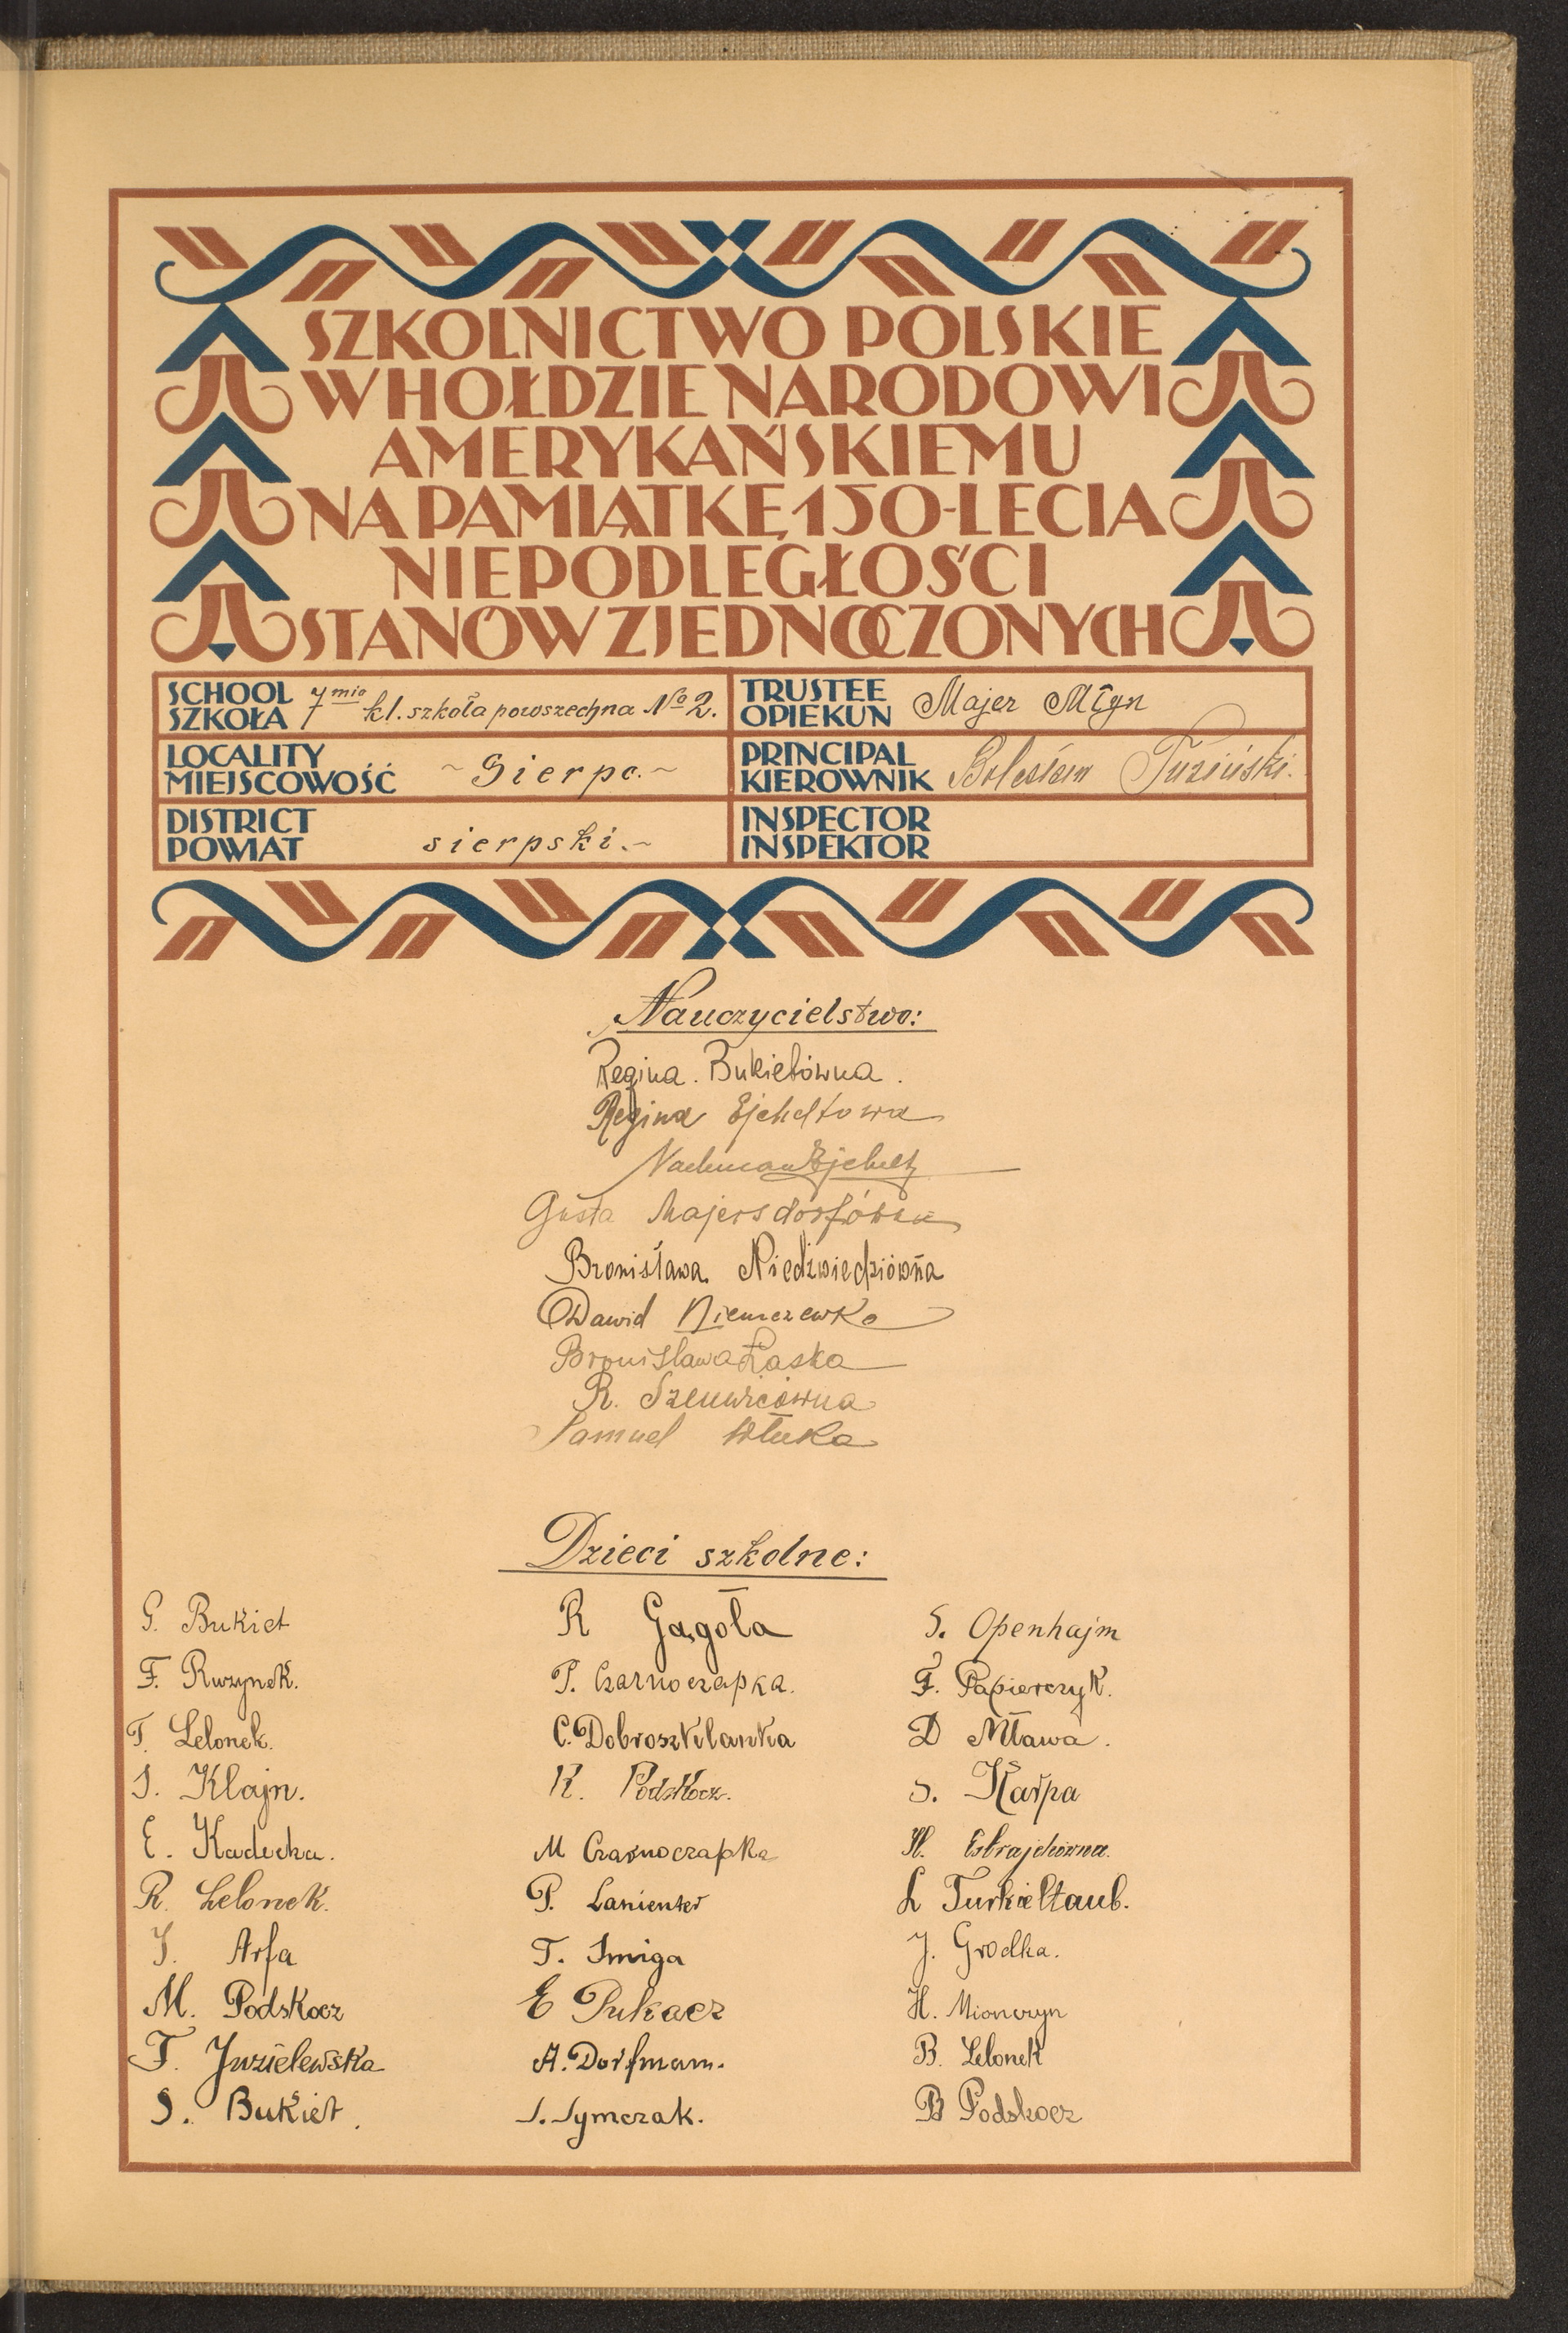 SZKOLNICTWO POLSKIE
W HOŁDZIE NARODOWI
AMERYKAŃSKIEMU
NA PAMIĄTKĘ 150-LECIA
NIEPODLEGŁOŚCI
STANÓW ZJEDNOCZONYCH
SCHOOL
SZKOŁA 7mio kl. szkoła powszechna No 2.
TRUSTEE
OPIEKUN Majer Młyn
LOCALITY
MIEJSCOWOŚĆ ~ Sierpc. ~
PRINCIPAL
KIEROWNIK Bolesław Tuziński.
DISTRICT
POWIAT sierpski. ~
INSPECTOR
INSPEKTOR
Nauczycielstwo:
Regina. Bukietówna.
Regina Ejcheltowa
Nachman Ejchelt
Gusta Majersdorfówna
Bronisława Niedźwiedziówna
Dawid Niemczewko
Bronisława Łaska
R. Szenwicówna
Samuel Włuka
Dzieci szkolne:
G. Bukiet
F. Rwzynek.
T. Lelonek.
S. Klajn.
E. Kadecka.
R. Lelonek.
J. Arfa
M. Podskocz
T. Jwzielewska
S. Bukiet.
R Gągoła
P. Czarnoczapka.
C. Dobroszklanka
K. Podskocz.
M Czarnoczapka
P. Lanienter
T. Smiga
E Pukacz
A. Dorfmam.
S. Symczak.
S. Openhajm
F. Papierczyk.
D Mława.
S. Karpa
H. Estrajchówna.
L Turkieltaub.
J. Grodka.
H. Mionczyn
B. Lelonek
B Podskocz